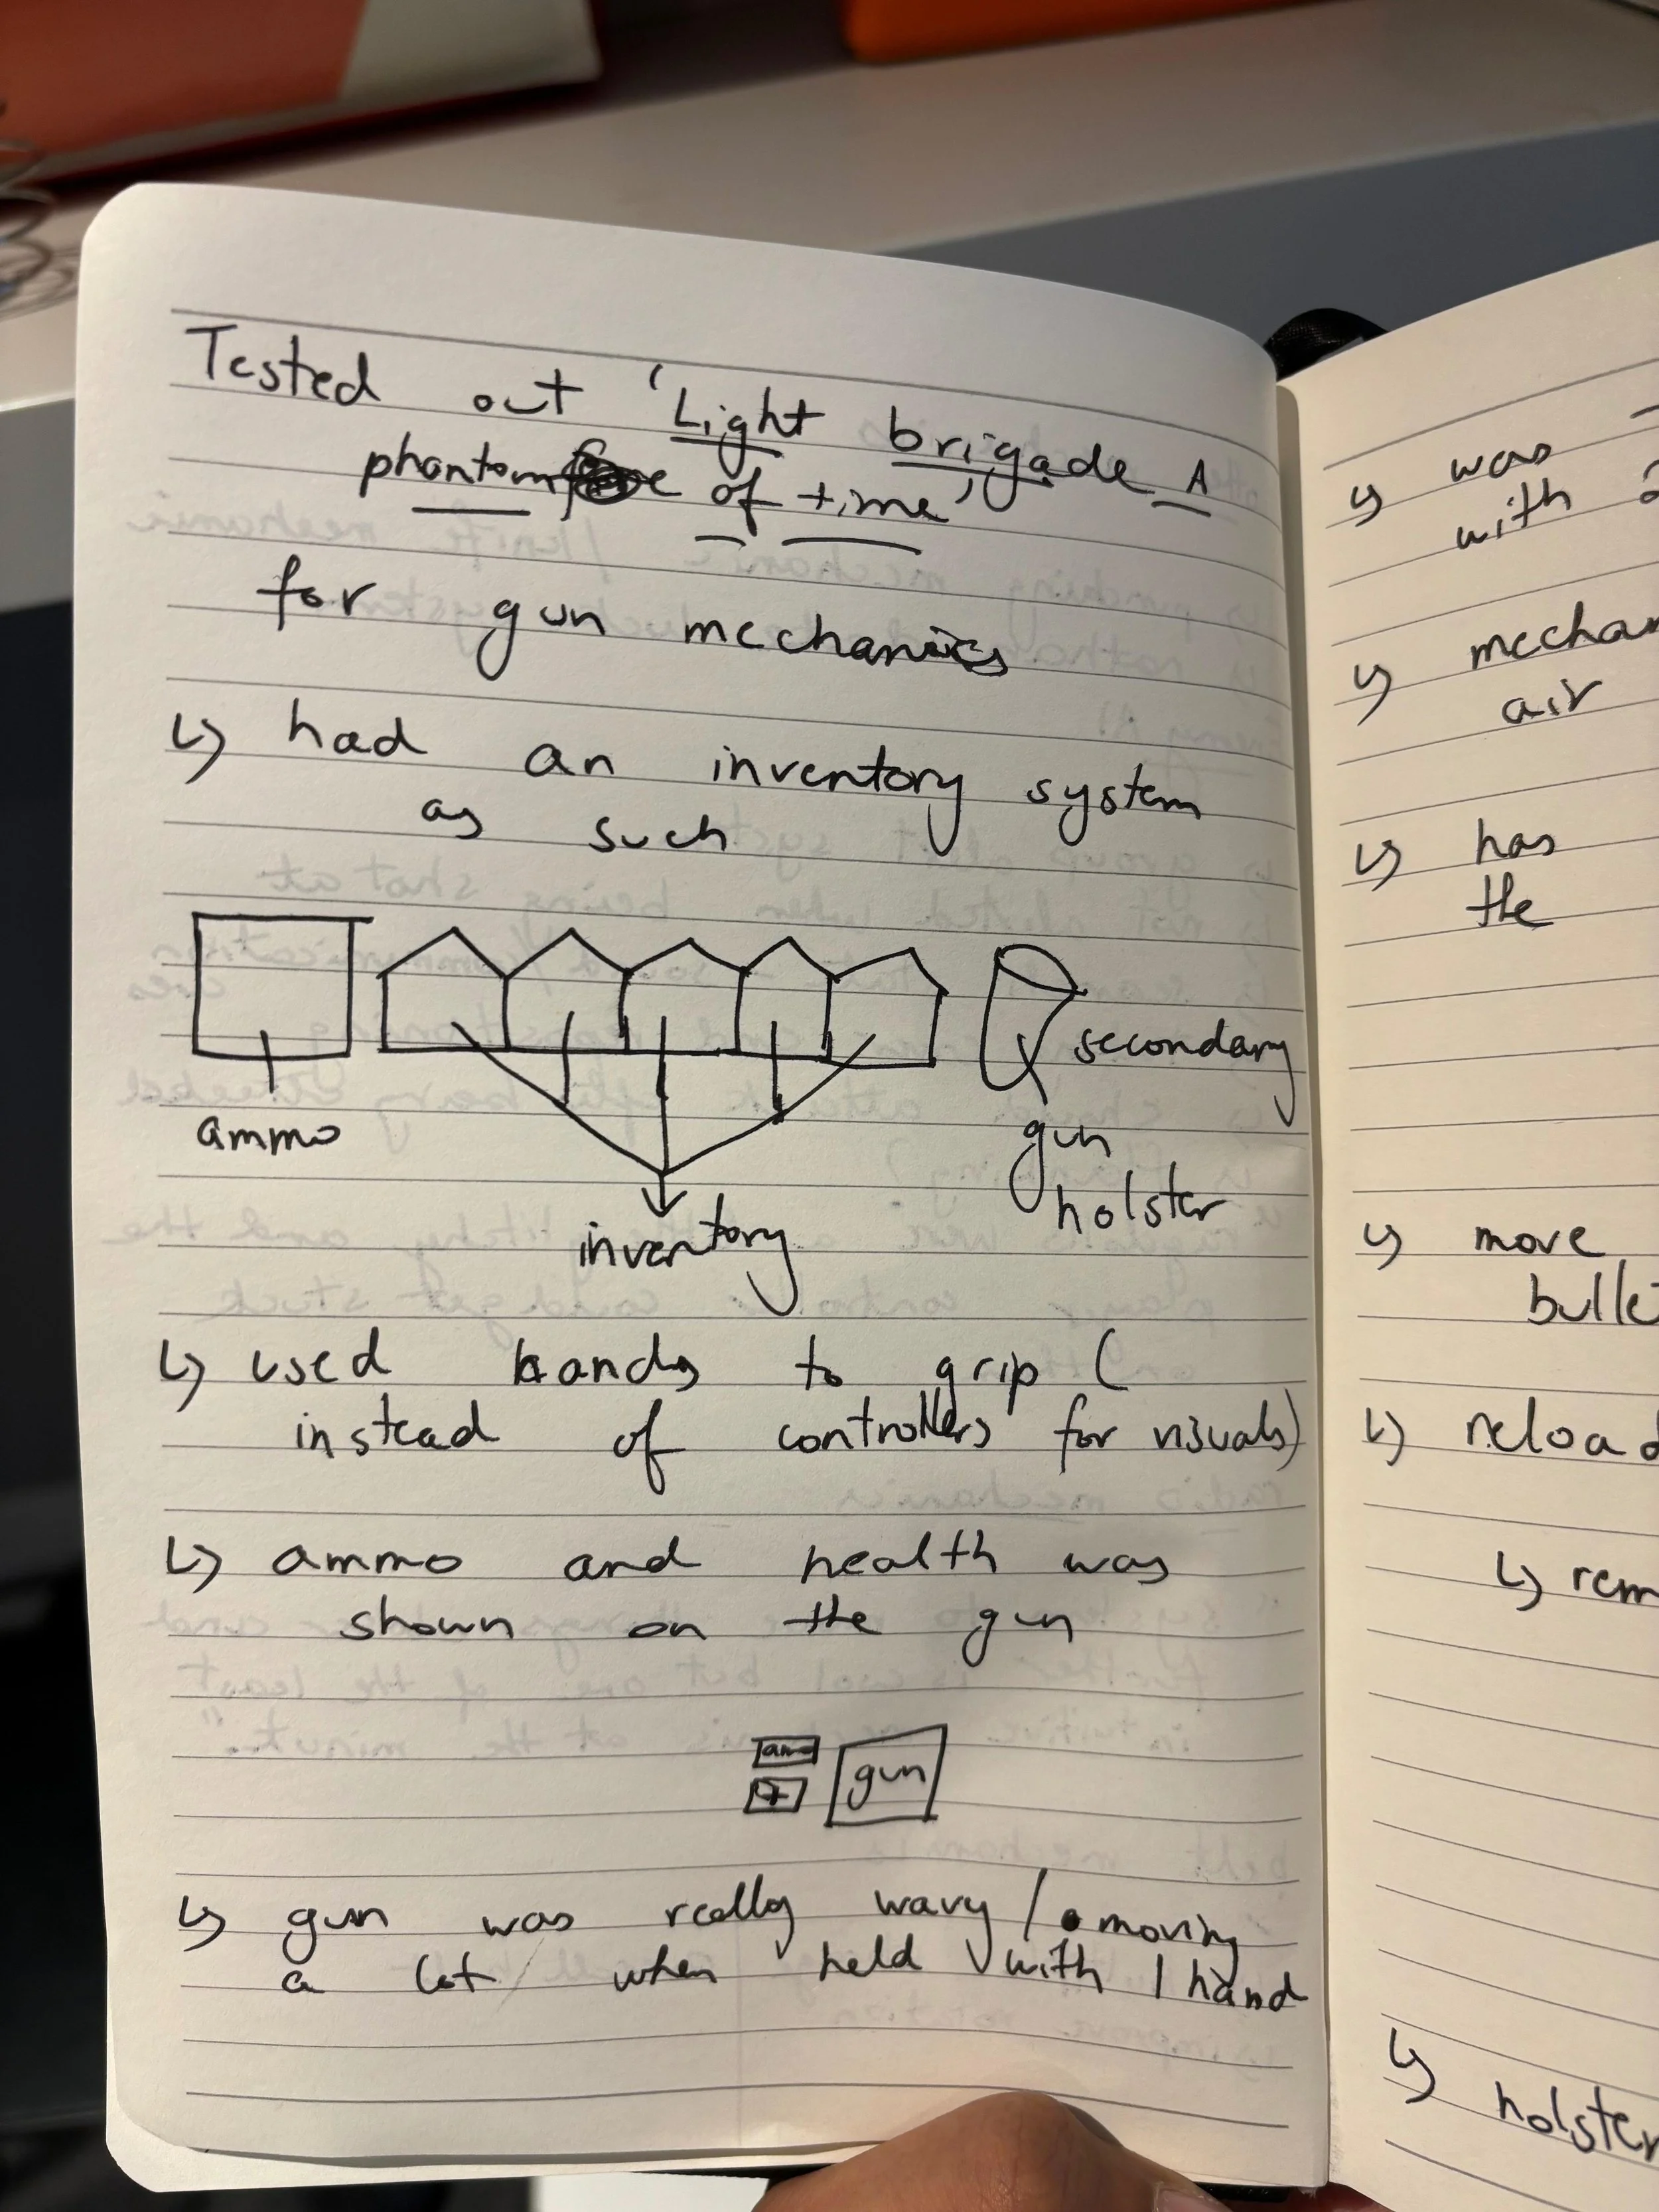 Tested out 'Light brigade A
phantom of time'
for gun mechanics
↳ had an inventory system
as such
secondary
ammo
gun
holster
inventory
↳ used hands to grip (
instead of controllers for visuals)
↳ ammo and health was
shown on the gun
+ gun
↳ gun was really wavy / moving
a lot when held with 1 hand
↳ was
with
↳
air
↳ has
the
↳ move
↳
↳
↳